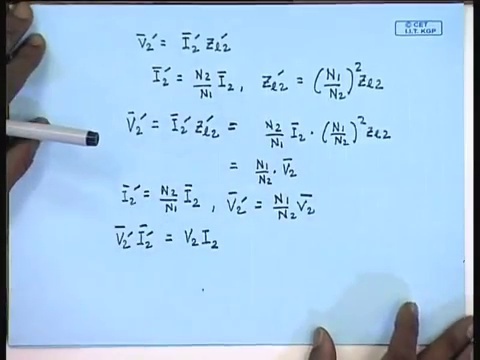 © CET
I.I.T. KGP
V̄₂′ = Ī₂′ Z̄ℓ₂′
Ī₂′ = N₂/N₁ Ī₂ , Zℓ₂′ = (N₁/N₂)² Zℓ₂
V̄₂′ = Ī₂′ Zℓ₂′ = N₂/N₁ Ī₂ · (N₁/N₂)² Zℓ₂
= N₁/N₂ · V̄₂
Ī₂′ = N₂/N₁ Ī₂ , V̄₂′ = N₁/N₂ V̄₂
V̄₂′ Ī₂′ = V₂ I₂